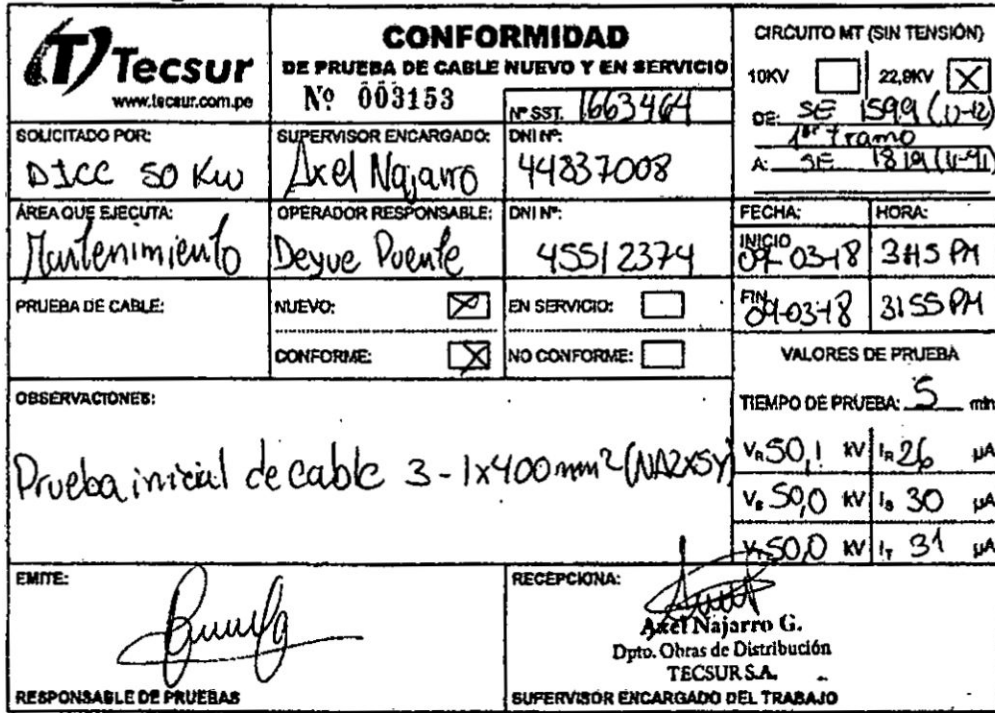 Tecsur
www.tecsur.com.pe
CONFORMIDAD
DE PRUEBA DE CABLE NUEVO Y EN SERVICIO
Nº 003153
Nº SST. 1663464
CIRCUITO MT (SIN TENSIÓN)
10KV 22,9KV X
DE: SE 1599 (U-12)
1er tramo
A: SE 1819 (U-91)
SOLICITADO POR:
DICC 50 KW
SUPERVISOR ENCARGADO:
Axel Najarro
DNI Nº:
44837008
ÁREA QUE EJECUTA:
Mantenimiento
OPERADOR RESPONSABLE:
Deyve Puente
DNI Nº:
45512374
FECHA: HORA:
INICIO
09-03-18 3:45 PM
FIN
09-03-18 3:55 PM
PRUEBA DE CABLE:
NUEVO: X
EN SERVICIO:
CONFORME: X
NO CONFORME:
VALORES DE PRUEBA
TIEMPO DE PRUEBA: 5 min
VR 50,1 KV IR 26 µA
VS 50,0 KV IS 30 µA
VT 50,0 KV IT 31 µA
OBSERVACIONES:
Prueba inicial de cable 3-1x400mm² (NA2XSY)
EMITE:
RESPONSABLE DE PRUEBAS
RECEPCIONA:
Axel Najarro G.
Dpto. Obras de Distribución
TECSUR S.A.
SUPERVISOR ENCARGADO DEL TRABAJO